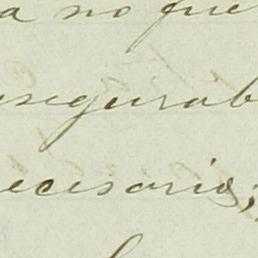 a no fue
asegurab
ecesario;